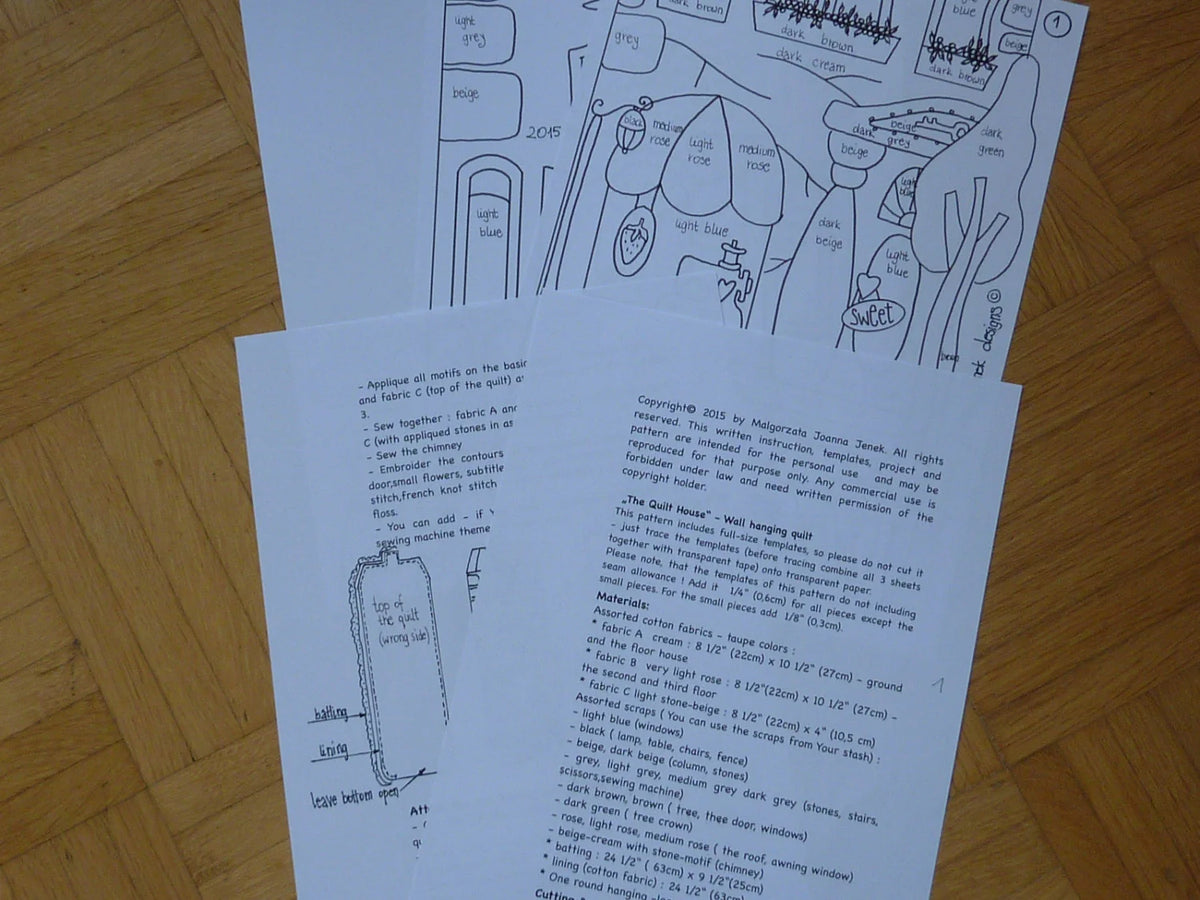 light
grey
beige
2015
light
blue
dark brown
grey
dark brown
dark cream
blue
dark brown
grey
beige
1
black
medium
rose
light
rose
medium
rose
light blue
beige
dark
grey
beige
dark
green
light
blue
dark
beige
light
blue
sweet
designs ©
- Applique all motifs on the basic
and fabric C (top of the quilt)
3.
- Sew together : fabric A and
C (with appliqued stones in as
- Sew the chimney
- Embroider the contours
door,small flowers, subtitle
stitch,french knot stitch
floss.
- You can add - if
sewing machine theme
top of
the quilt
(wrong side)
batting
lining
leave bottom open
Copyright© 2015 by Malgorzata Joanna Jenek. All rights
reserved. This written instruction, templates, project and
pattern are intended for the personal use and may be
reproduced for that purpose only. Any commercial use is
forbidden under law and need written permission of the
copyright holder.
„The Quilt House“ - Wall hanging quilt
This pattern includes full-size templates, so please do not cut it
- just trace the templates (before tracing combine all 3 sheets
together with transparent tape) onto transparent paper.
Please note, that the templates of this pattern do not including
seam allowance ! Add it 1/4" (0,6cm) for all pieces except the
small pieces. For the small pieces add 1/8" (0,3cm).
Materials:
Assorted cotton fabrics - taupe colors :
* fabric A cream : 8 1/2" (22cm) x 10 1/2" (27cm) - ground
and the floor house
* fabric B very light rose : 8 1/2"(22cm) x 10 1/2" (27cm) -
the second and third floor
* fabric C light stone-beige : 8 1/2" (22cm) x 4" (10,5 cm)
Assorted scraps ( You can use the scraps from Your stash) :
- light blue (windows)
- black ( lamp, table, chairs, fence)
- beige, dark beige (column, stones)
- grey, light grey, medium grey dark grey (stones, stairs,
scissors,sewing machine)
- dark brown, brown ( tree, thee door, windows)
- dark green ( tree crown)
- rose, light rose, medium rose ( the roof, awning window)
- beige-cream with stone-motif (chimney)
* batting : 24 1/2" ( 63cm) x 9 1/2"(25cm)
* lining (cotton fabric) : 24 1/2" (63cm)
* One round hanging
Cutting
1